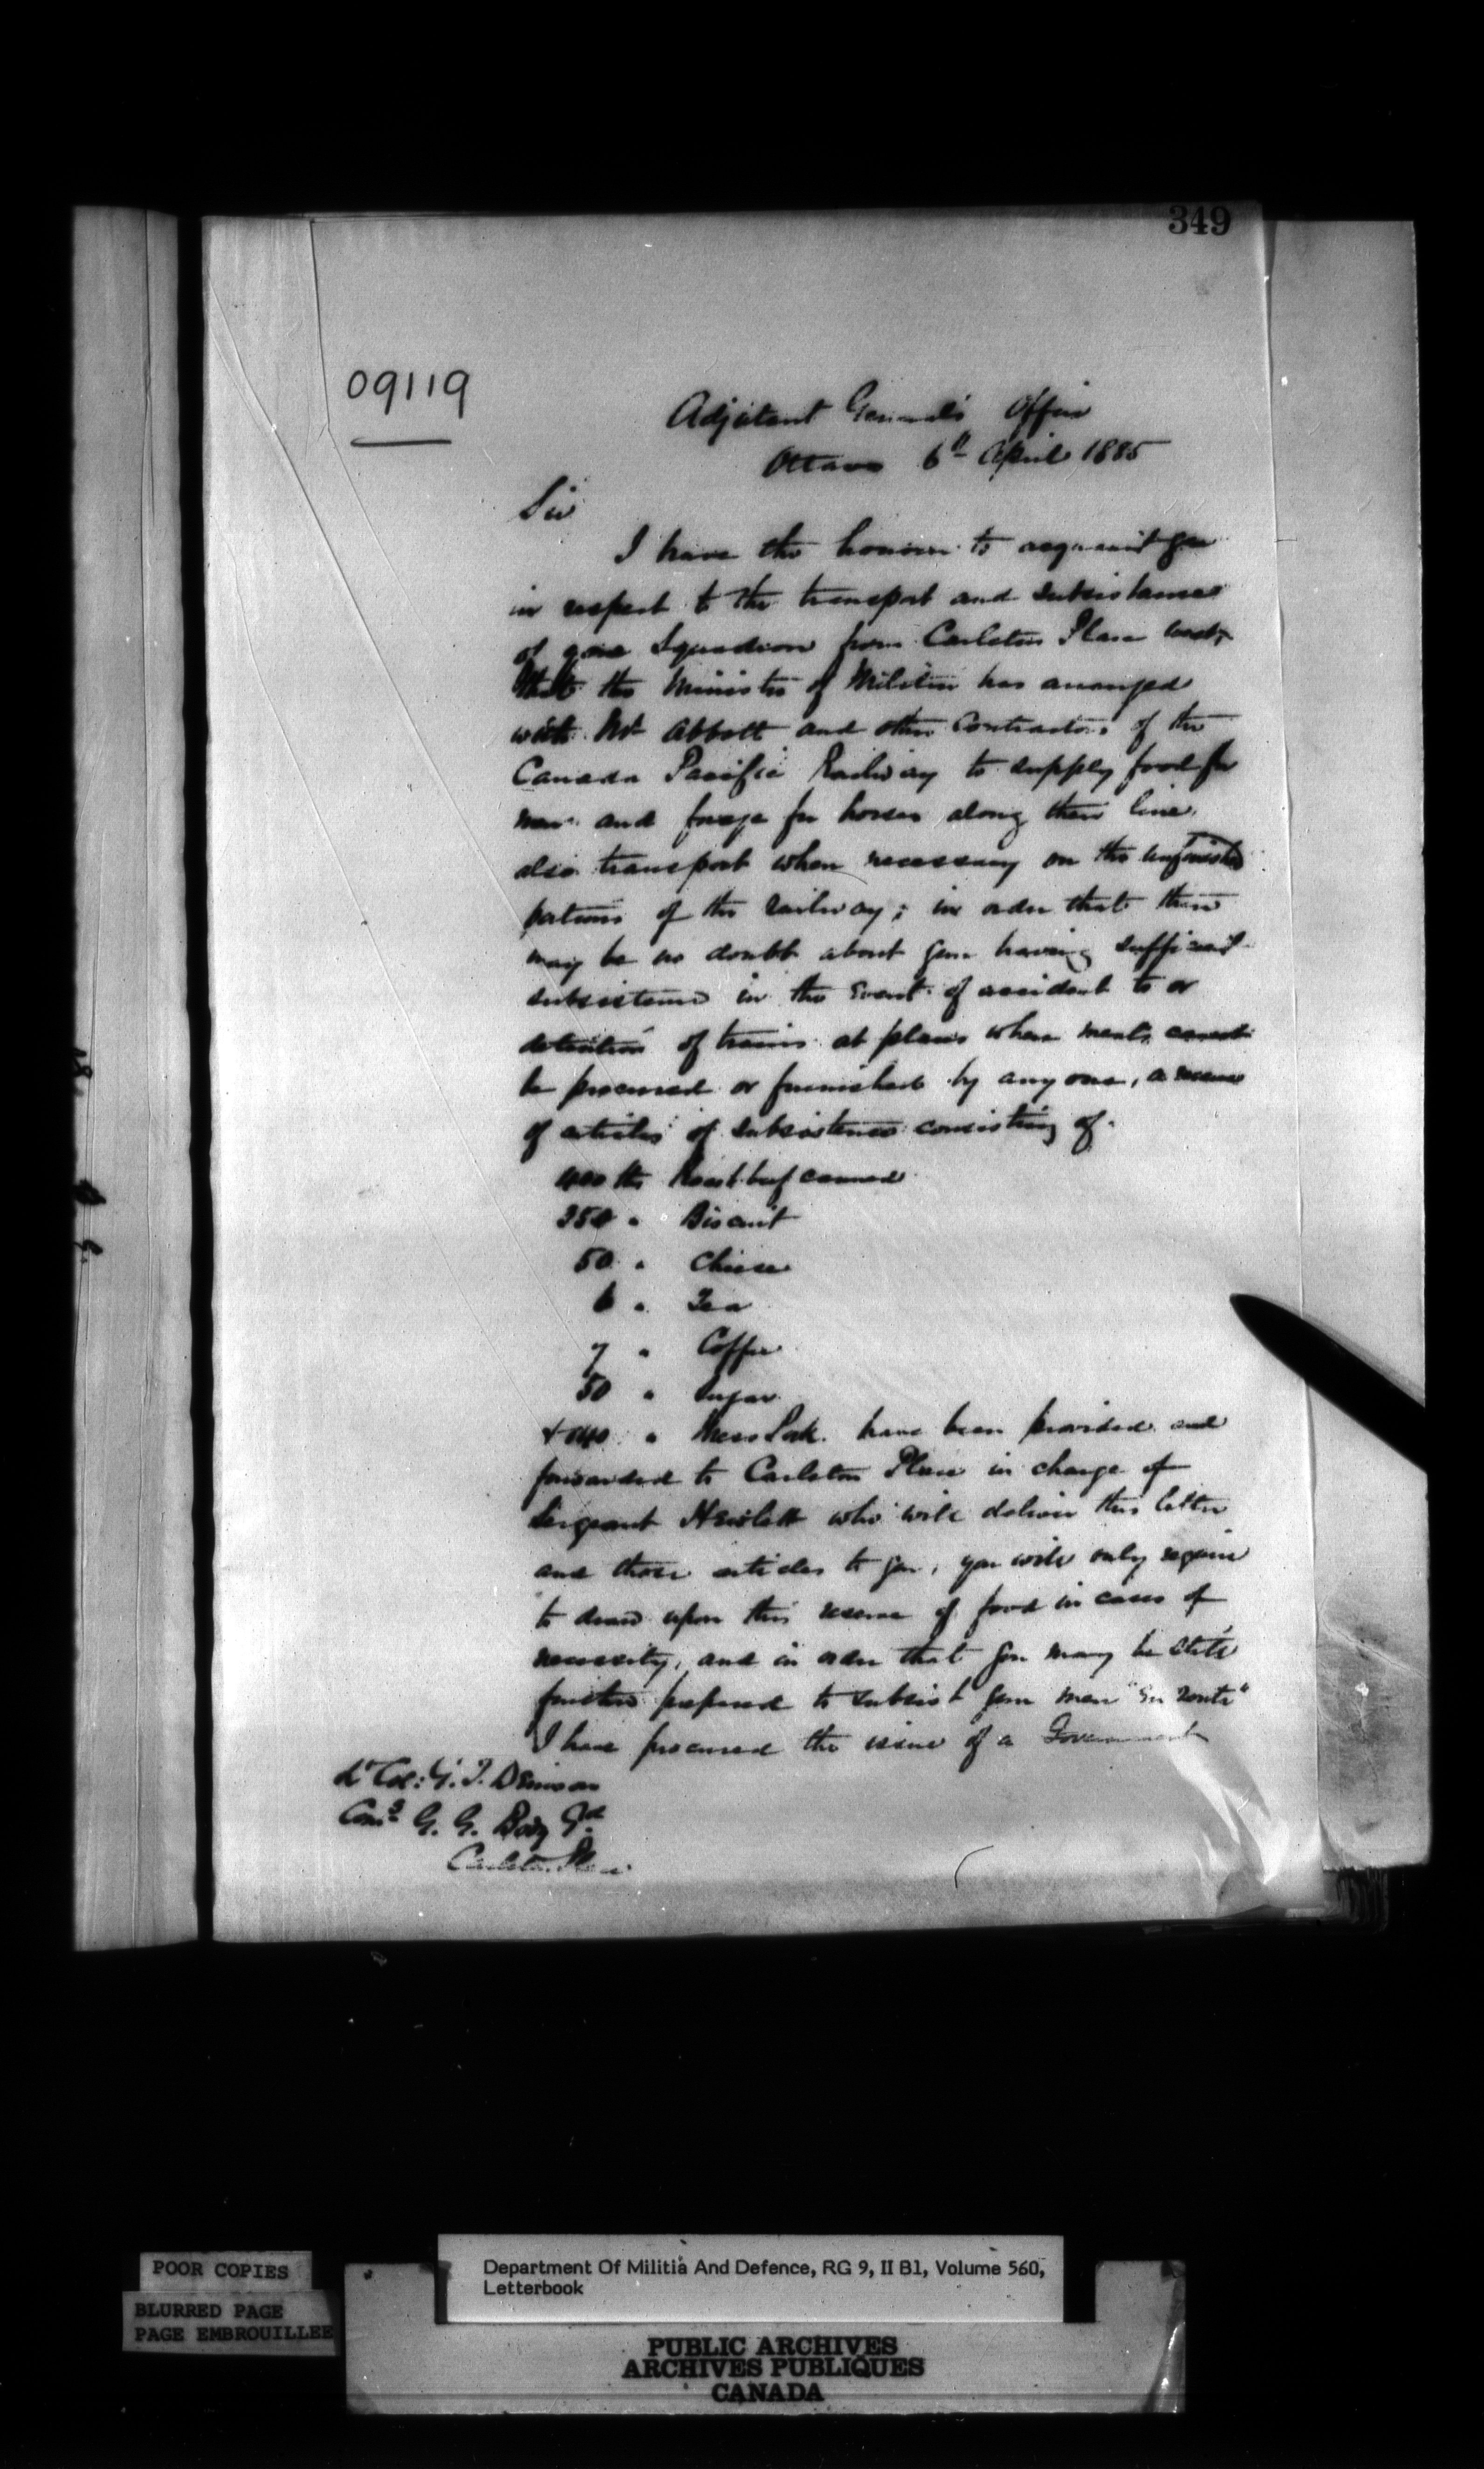 349
09119
Adjutant General's Office
Ottawa 6th April 1885
Sir
I have the honour to acquaint you
in respect to the transport and subsistance
of your Squadron from Carleton Place west,
that the Minister of Militia has arranged
with Mr Abbott and other Contractors of the
Canada Pacific Railway to supply food for
men and forage for horses along their line,
also transport when necessary on the unfinished
portions of the railway; in order that there
may be no doubt about your having sufficient
subsistence in the event of accident to or
detention of trains at places where meals cannot
be procured or furnished by any one, a reserve
of articles of subsistence consisting of.
400 lbs Roast beef canned
350 " Biscuit
50 " Cheese
6 " Tea
7 " Coffee
50 " Sugar
& " Mess Pork. have been provided and
forwarded to Carleton Place in charge of
Sergeant Hewlett who will deliver this letter
and those articles to you, you will only require
to draw upon this reserve of food in cases of
necessity, and in order that you may be still
further prepared to subsist your men "En route"
I have procured the issue of a Government
Lt Col: G. T. Denison
Comg G. G. Body Gd
Carleton Place
POOR COPIES
BLURRED PAGE
PAGE EMBROUILLEE
Department Of Militia And Defence, RG 9, II B1, Volume 560,
Letterbook
PUBLIC ARCHIVES
ARCHIVES PUBLIQUES
CANADA